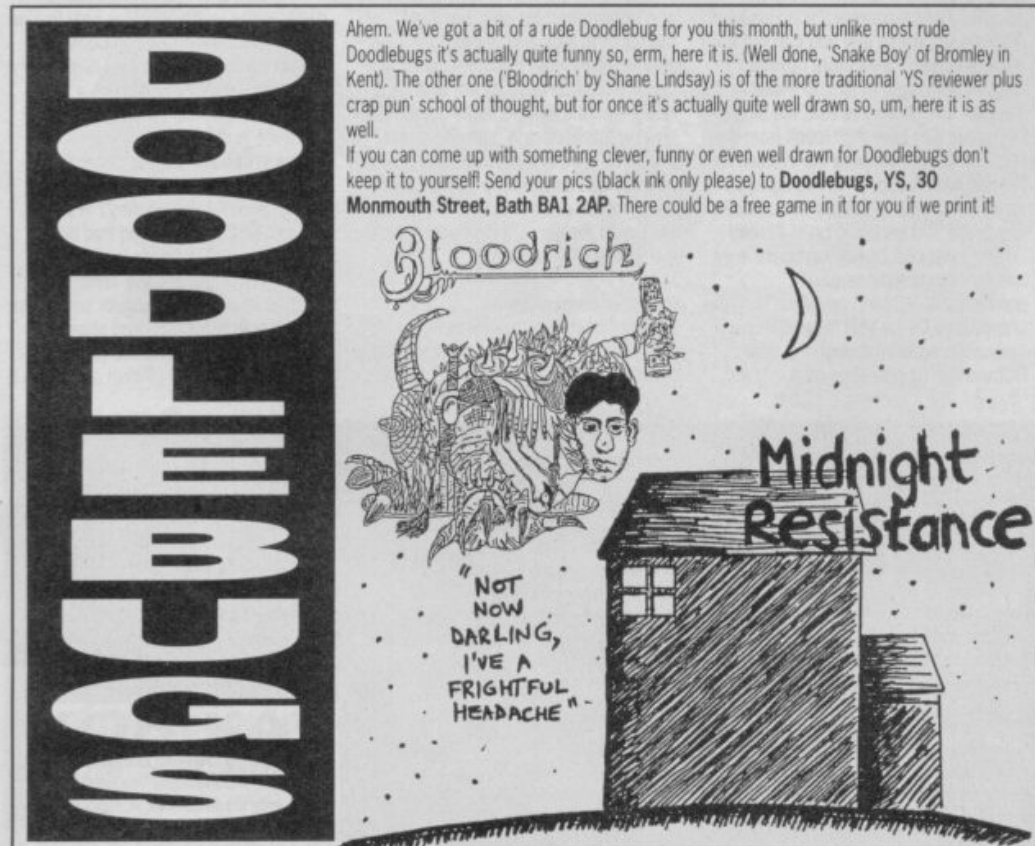 DOODLEBUGS
Ahem. We've got a bit of a rude Doodlebug for you this month, but unlike most rude
Doodlebugs it's actually quite funny so, erm, here it is. (Well done, 'Snake Boy' of Bromley in
Kent). The other one ('Bloodrich' by Shane Lindsay) is of the more traditional 'YS reviewer plus
crap pun' school of thought, but for once it's actually quite well drawn so, um, here it is as
well.
If you can come up with something clever, funny or even well drawn for Doodlebugs don't
keep it to yourself! Send your pics (black ink only please) to Doodlebugs, YS, 30
Monmouth Street, Bath BA1 2AP. There could be a free game in it for you if we print it!
Bloodrich
Midnight
Resistance
"NOT
NOW
DARLING,
I'VE A
FRIGHTFUL
HEADACHE"